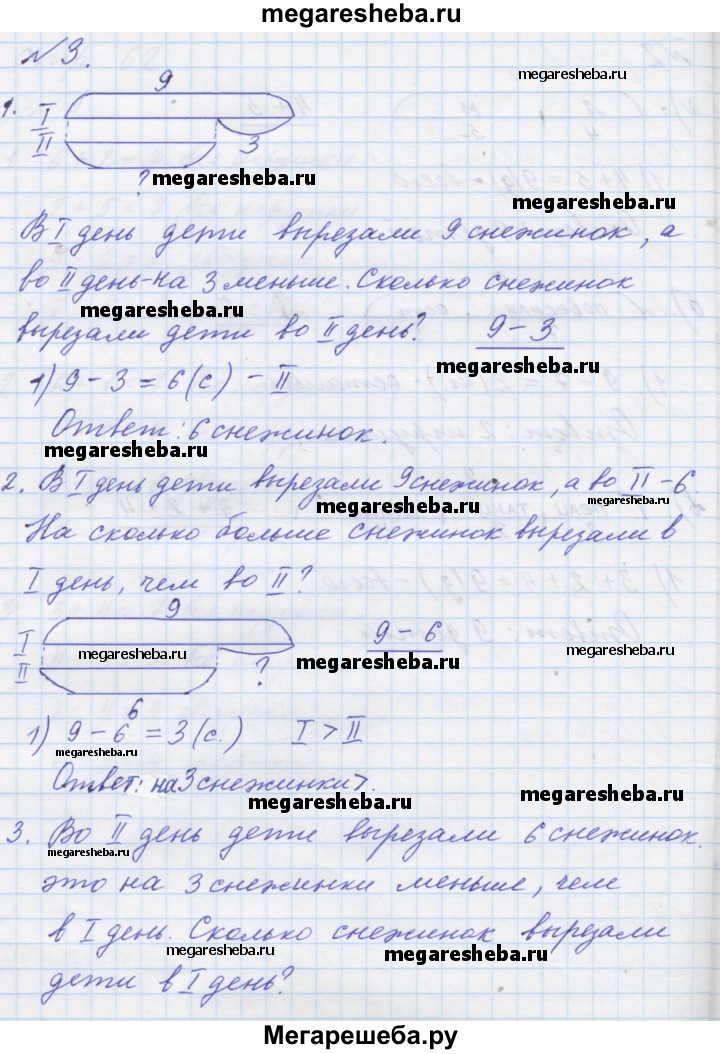 megaresheba.ru
№3.
megaresheba.ru
9
1. I
II
3
?
megaresheba.ru
В I день дети вырезали 9 снежинок, а
во II день-на 3 меньше. Сколько снежинок
megaresheba.ru
вырезали дети во II день? 9-3
megaresheba.ru
1) 9-3=6(с) - II
Ответ: 6 снежинок.
megaresheba.ru
2. В I день дети вырезали 9 снежинок, а во II - 6
megaresheba.ru
megaresheba.ru
На сколько больше снежинок вырезали в
I день, чем во II?
9
I
II
megaresheba.ru
?
9-6
megaresheba.ru
megaresheba.ru
6
1) 9-6=3(с.) I > II
megaresheba.ru
Ответ: на 3 снежинки >.
megaresheba.ru
megaresheba.ru
3. Во II день дети вырезали 6 снежинок.
megaresheba.ru
это на 3 снежинки меньше, чем
в I день. Сколько снежинок вырезали
megaresheba.ru
megaresheba.ru
дети в I день?
Мегарешеба.ру